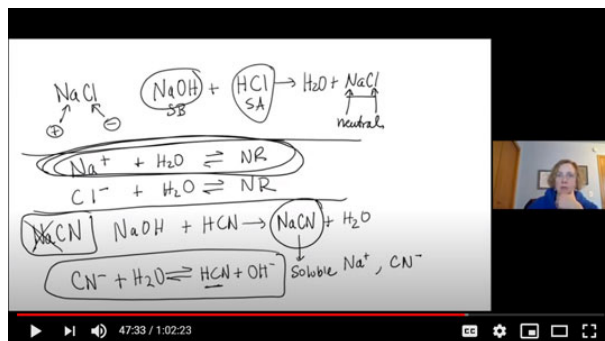 NaCl NaOH + HCl → H₂O + NaCl
⊕ ⊖ SB SA neutral
Na⁺ + H₂O ⇌ NR
Cl⁻ + H₂O ⇌ NR
NaCN NaOH + HCN → NaCN + H₂O
CN⁻ + H₂O ⇌ HCN + OH⁻ soluble Na⁺, CN⁻
47:33 / 1:02:23 CC